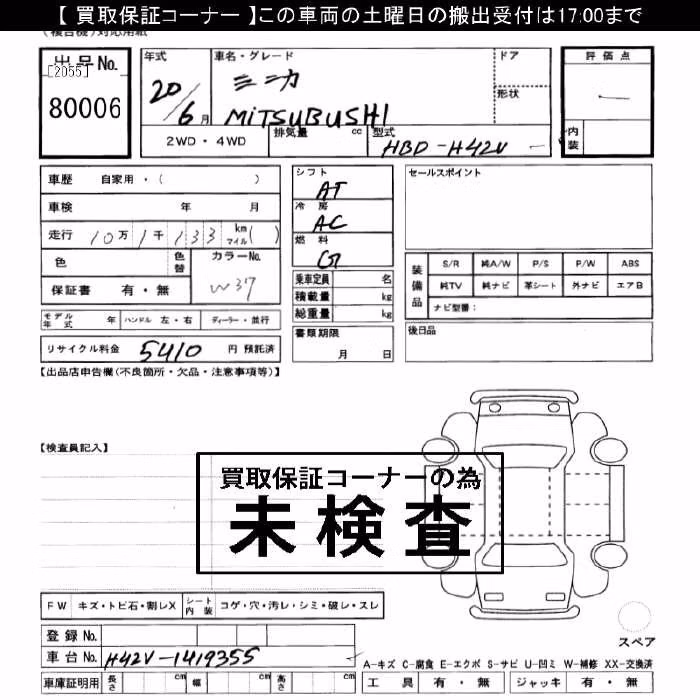 【 買取保証コーナー 】この車両の土曜日の搬出受付は17:00まで
(複合機)対応用紙
出品No.
[2055]
80006
年式
20/6月
車名・グレード
ミニカ
MiTSUBUSHI
ドア
形状
評価点
2WD・4WD
排気量 cc
型式
HBD-H42V
内装
車歴 自家用・( )
車検 年 月
走行 10万 1千 133 km マイル( )
色
色替
カラーNo.
W37
保証書 有・無
モデル年式 年 ハンドル 左・右 ディーラー・並行
リサイクル料金 5410 円 預託済
シフト
AT
冷房
AC
燃料
G
乗車定員 名
積載量 kg
総重量 kg
書類期限
月 日
セールスポイント
装備品
S/R 純A/W P/S P/W ABS
純TV 純ナビ 革シート 外ナビ エアB
ナビ型番:
後日品
【出品店申告欄(不良箇所・欠品・注意事項等)】
【検査員記入】
買取保証コーナーの為
未検査
FW キズ・トビ石・割レX シート内装 コゲ・穴・汚レ・シミ・破レ・スレ
登録No.
車台No. H42V-1419355
車庫証明用 長さ cm 幅 cm 高さ cm
スペア
A-キズ C-腐食 E-エクボ S-サビ U-凹ミ W-補修 XX-交換済
工具 有・無 ジャッキ 有・無